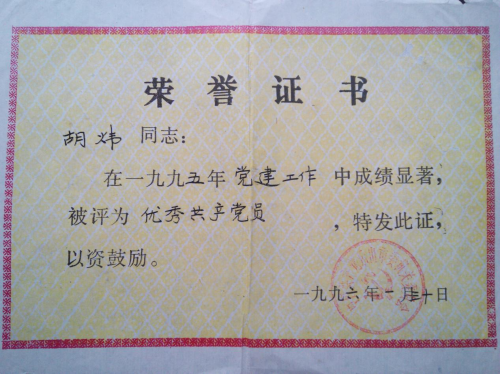 荣誉证书
胡炜 同志：
在一九九五年党建工作中成绩显著，
被评为优秀共产党员，特发此证，
以资鼓励。
一九九六年一月三十日